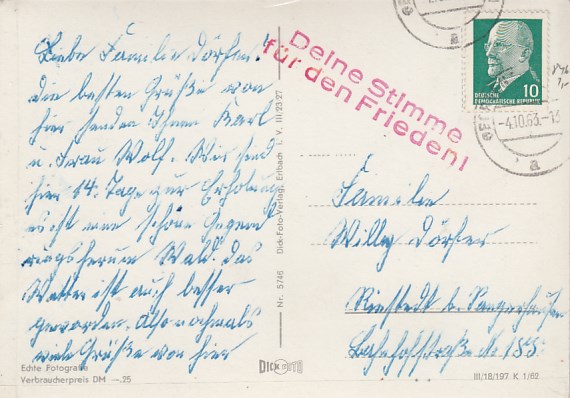 Liebe Familie Dörfer!
die besten Grüße von
hier senden Ihnen Karl
u. Frau Wolf. Wir sind
hier 14. Tage zur Erholung
es ist eine schöne Gegend
ringsherum Wald. das
Wetter ist auch besser
geworden. Also nochmals
viele Grüße von hier
Echte Fotografie
Verbraucherpreis DM —.25
Deine Stimme
für den Frieden!
Nr. 5746 Dick-Foto-Verlag, Erlbach i. V. III/23/27
DICK FOTO
10
DEUTSCHE
DEMOKRATISCHE REPUBLIK
-4.10.63.-
a
a
Familie
Willy Dörfer
Rienstedt b. Sangerhausen
Bahnhofstraße N. 155
III/18/197 K 1/62